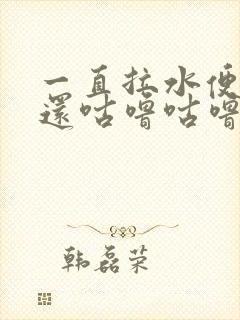 一直拉水便
還咕嚕咕嚕
韩磊荣